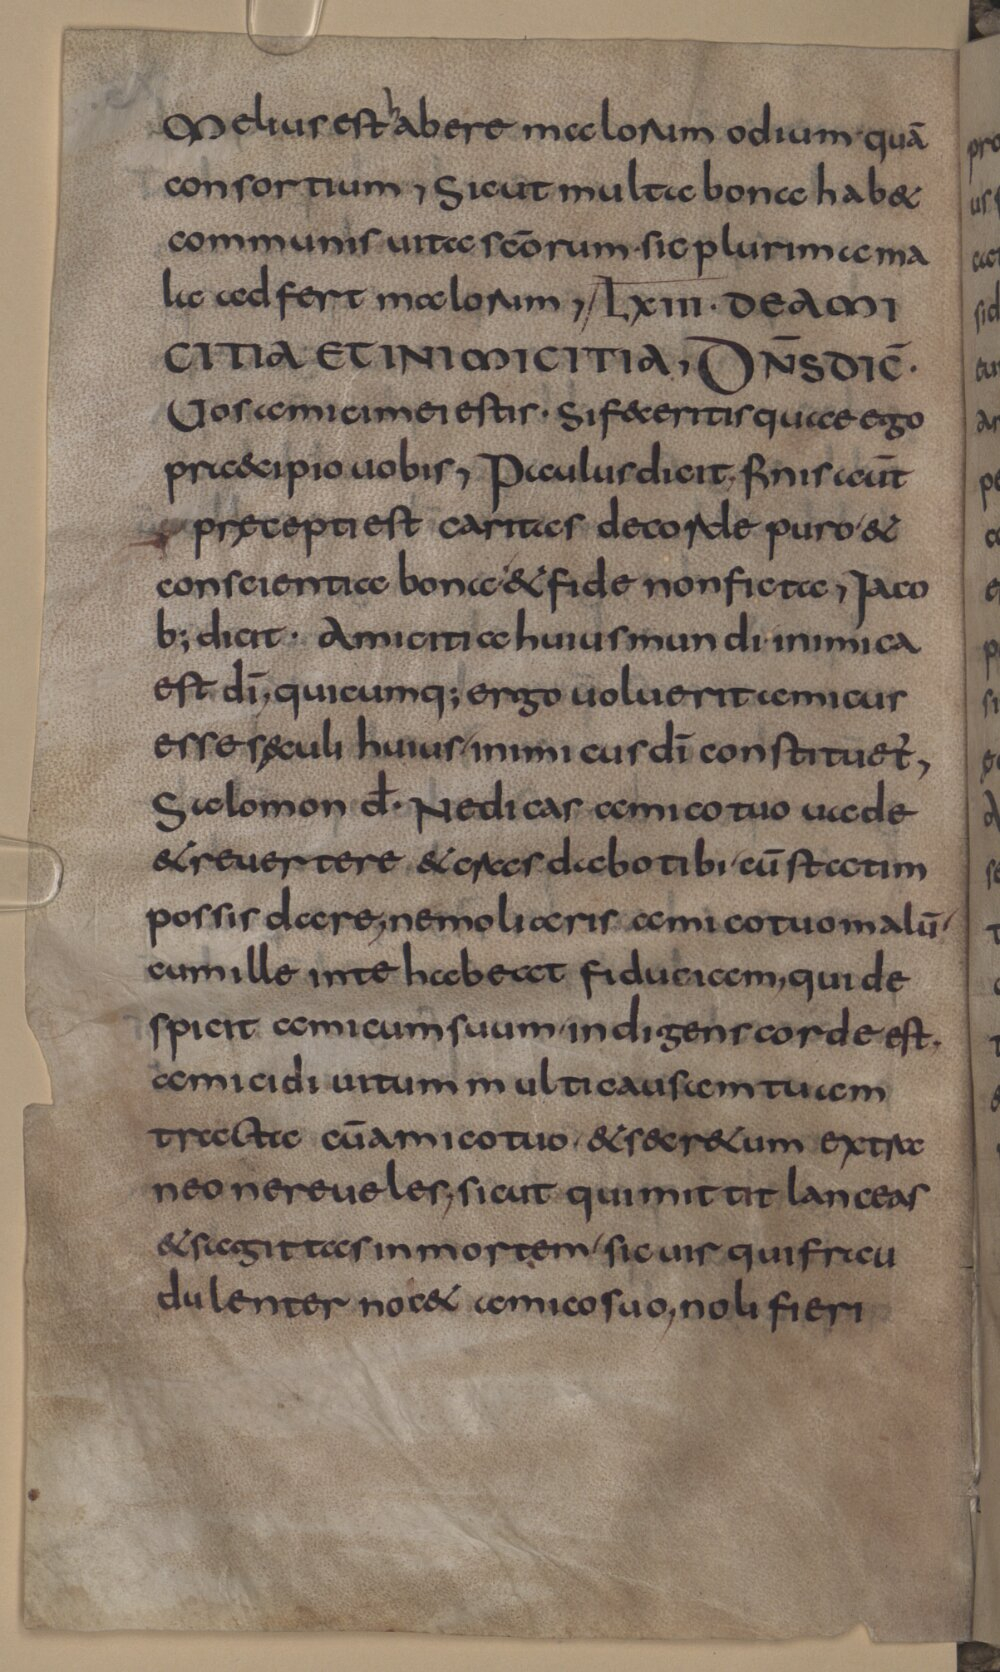 Melius est habere malorum odium quā
consortium, Sicut multa bona hab&
communis uita scōrum sic plurima ma
la adfert malorum, Lxiii. DEAMI
CITIA ET INIMICITIA, DN̄S DIC̄.
Uos amici mei estis. Si feceritis quae ego
praecipio uobis, Paulus dicit. finis aūt
pręcepti est caritas de corde puro &
conscientia bona & fide non ficta, Jaco
b; dicit. Amicitia huius mundi inimica
est dī, quicumq; ergo uoluerit amicus
esse sęculi huius inimicus dī constituet̄,
Salomon d̄. Ne dicas amico tuo uade
& reuertere & cras dabo tibi cū statim
possis dare, ne moliaris amico tuo malū
cum ille in te habeat fiduciam, qui de
spicit amicum suum indigens corde est.
amici diuitum multi causam tuam
tracta cū amico tuo & secr&um extra
neo ne reueles, sicut qui mittit lanceas
& sagittas in mortem sic uir qui frau
dulenter noc& amico suo, noli fieri